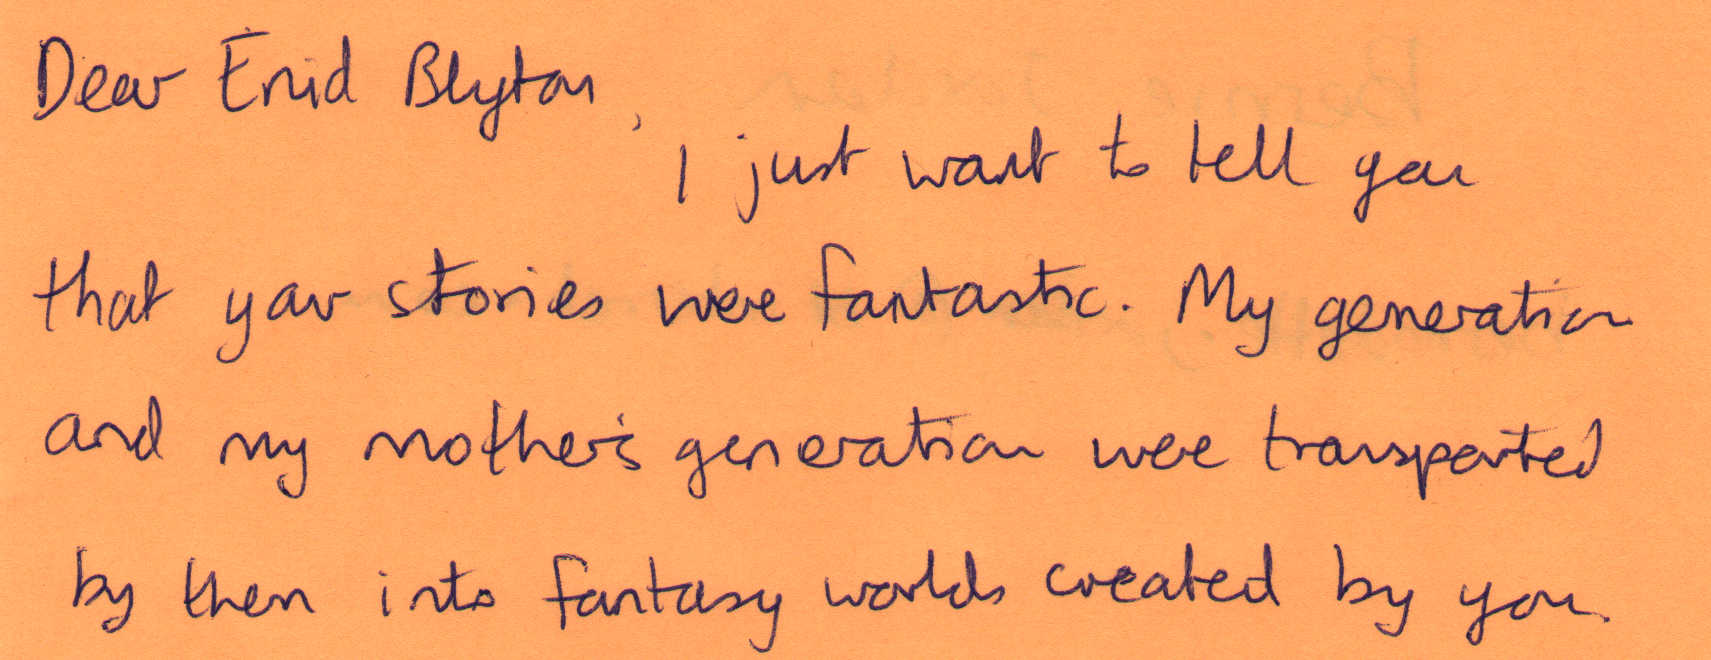 Dear Enid Blyton,
I just want to tell you
that your stories were fantastic. My generation
and my mother's generation were transported
by them into fantasy worlds created by you.